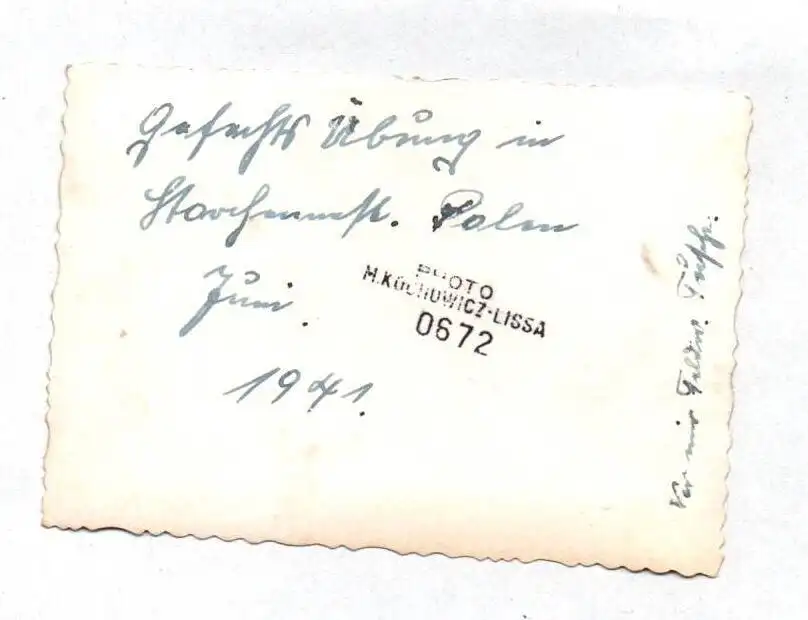 Gefechts Übung in
Storchennest. Polen
Juni.
1941.
PHOTO
M.KOCHOWICZ-LISSA
0672
Vor mir Feldw.